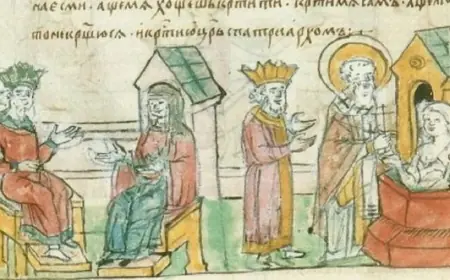 на есми · аще мѧ хощешь кртити · крти мѧ самъ · аще
то не крщюсѧ · и крти ю црь с патреархомъ ·